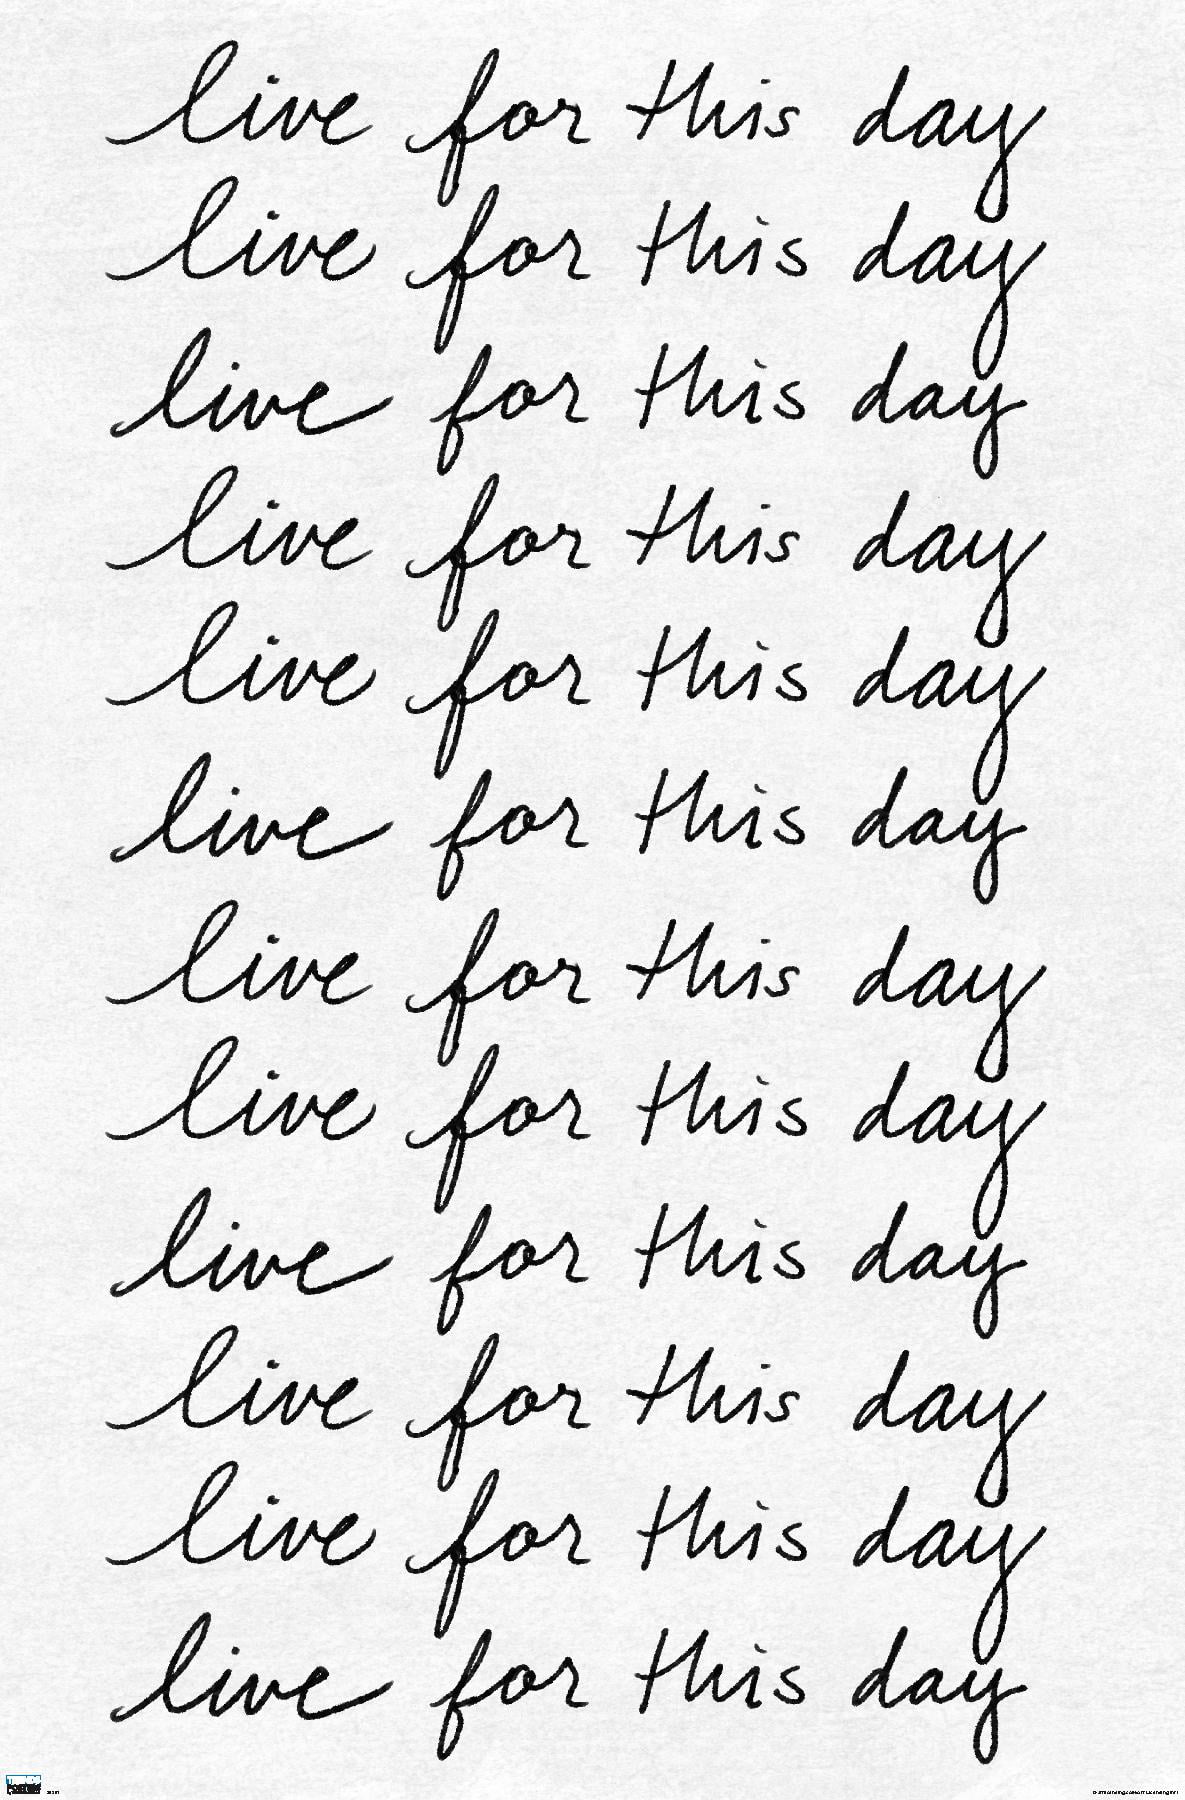 live for this day
live for this day
live for this day
live for this day
live for this day
live for this day
live for this day
live for this day
live for this day
live for this day
live for this day
live for this day